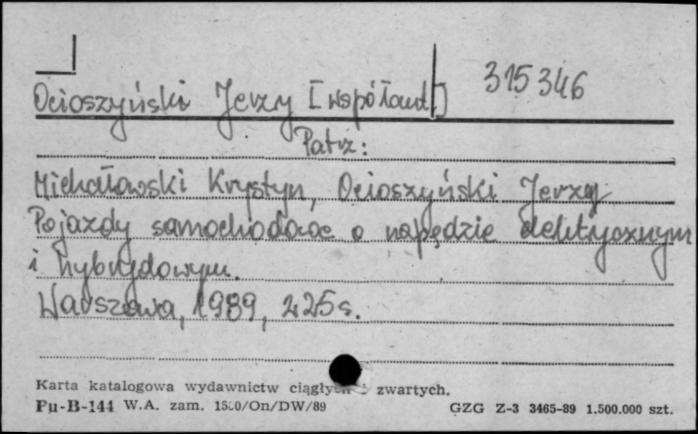 315346
Ocioszyński Jerzy [współaut.]
Patrz:
Michałowski Krystyn, Ocioszyński Jerzy
Pojazdy samochodowe o napędzie elektrycznym
i hybrydowym.
Warszawa, 1989, 225 s.
Karta katalogowa wydawnictw ciągłych i zwartych.
Pu-B-144 W.A. zam. /On/DW/89 GZG Z-3 3465-89 1.500.000 szt.